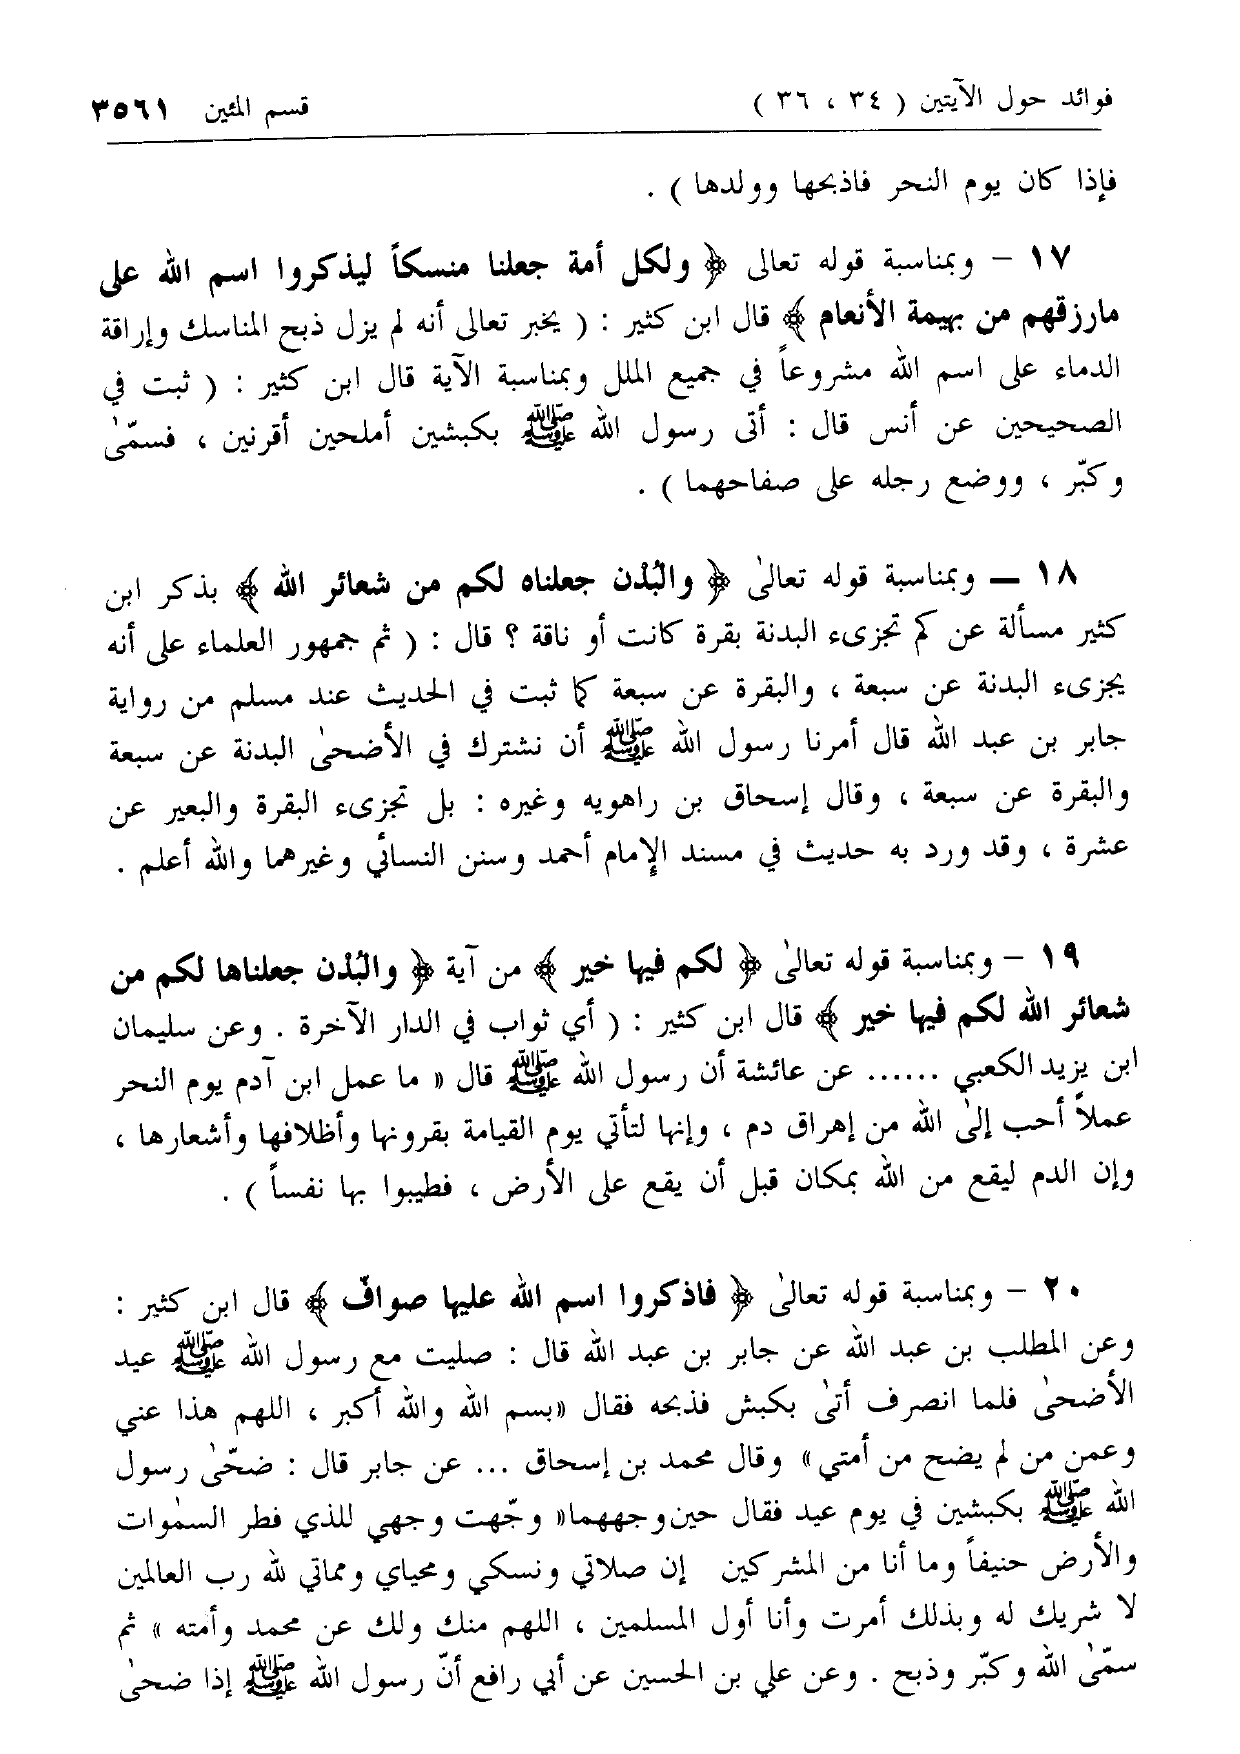 فوائد حول الآيتين ( ٣٤ ، ٣٦ ) قسم المئين ٣٥٦١
فإذا كان يوم النحر فاذبحها وولدها ) .
١٧ – وبمناسبة قوله تعالى ﴿ ولكل أمة جعلنا منسكاً ليذكروا اسم الله على
مارزقهم من بهيمة الأنعام ﴾ قال ابن كثير : ( يخبر تعالى أنه لم يزل ذبح المناسك وإراقة
الدماء على اسم الله مشروعاً في جميع الملل وبمناسبة الآية قال ابن كثير : ( ثبت في
الصحيحين عن أنس قال : أتى رسول الله ﷺ بكبشين أملحين أقرنين ، فسمّىٰ
وكبّر ، ووضع رجله على صفاحهما ) .
١٨ — وبمناسبة قوله تعالىٰ ﴿ والبُدْن جعلناه لكم من شعائر الله ﴾ بذكر ابن
كثير مسألة عن كم تجزىء البدنة بقرة كانت أو ناقة ؟ قال : ( ثم جمهور العلماء على أنه
يجزىء البدنة عن سبعة ، والبقرة عن سبعة كما ثبت في الحديث عند مسلم من رواية
جابر بن عبد الله قال أمرنا رسول الله ﷺ أن نشترك في الأضحىٰ البدنة عن سبعة
والبقرة عن سبعة ، وقال إسحاق بن راهويه وغيره : بل تجزىء البقرة والبعير عن
عشرة ، وقد ورد به حديث في مسند الإمام أحمد وسنن النسائي وغيرهما والله أعلم .
١٩ – وبمناسبة قوله تعالىٰ ﴿ لكم فيها خير ﴾ من آية ﴿ والبُدْن جعلناها لكم من
شعائر الله لكم فيها خير ﴾ قال ابن كثير : ( أي ثواب في الدار الآخرة . وعن سليمان
ابن يزيد الكعبي ...... عن عائشة أن رسول الله ﷺ قال « ما عمل ابن آدم يوم النحر
عملاً أحب إلىٰ الله من إهراق دم ، وإنها لتأتي يوم القيامة بقرونها وأظلافها وأشعارها ،
وإن الدم ليقع من الله بمكان قبل أن يقع على الأرض ، فطيبوا بها نفساً ) .
٢٠ – وبمناسبة قوله تعالىٰ ﴿ فاذكروا اسم الله عليها صوافّ ﴾ قال ابن كثير :
وعن المطلب بن عبد الله عن جابر بن عبد الله قال : صليت مع رسول الله ﷺ عيد
الأضحىٰ فلما انصرف أتىٰ بكبش فذبحه فقال «بسم الله والله أكبر ، اللهم هذا عني
وعمن من لم يضح من أمتي» وقال محمد بن إسحاق ... عن جابر قال : ضحّىٰ رسول
الله ﷺ بكبشين في يوم عيد فقال حين وجههما« وجّهت وجهي للذي فطر السمٰوات
والأرض حنيفاً وما أنا من المشركين إن صلاتي ونسكي ومحياي ومماتي لله رب العالمين
لا شريك له وبذلك أمرت وأنا أول المسلمين ، اللهم منك ولك عن محمد وأمته » ثم
سمّىٰ الله وكبّر وذبح . وعن علي بن الحسين عن أبي رافع أنّ رسول الله ﷺ إذا ضحىٰ